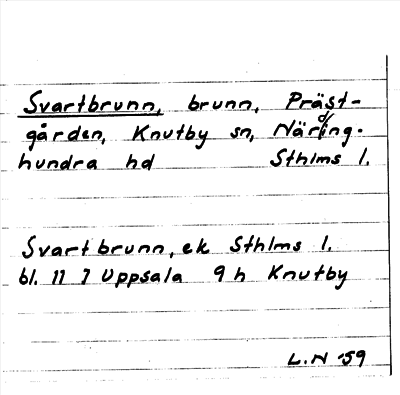 Svartbrunn, brunn, Präst-
gården, Knutby sn, Närding-
hundra hd Sthlms l.
Svartbrunn, ek Sthlms l.
bl. 11 7 Uppsala 9h Knutby
L.N -59